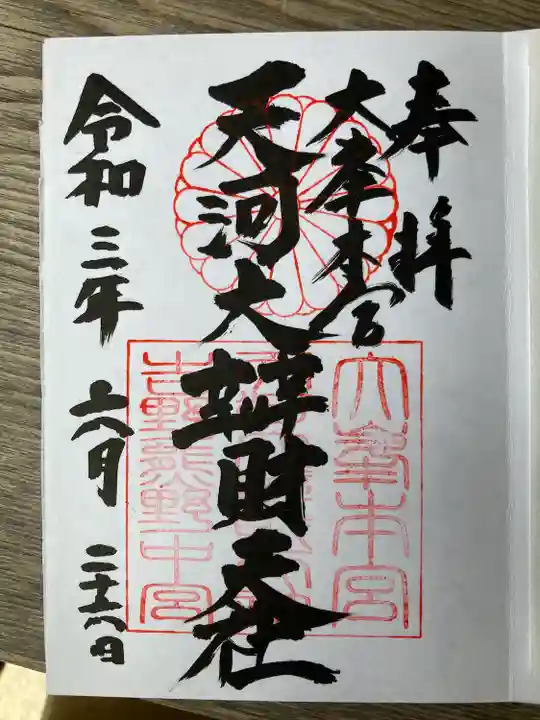 奉拝
大峯本宮
天河大辨財天社
令和三年 六月 二十六日
大峯本宮
吉野熊野中宮